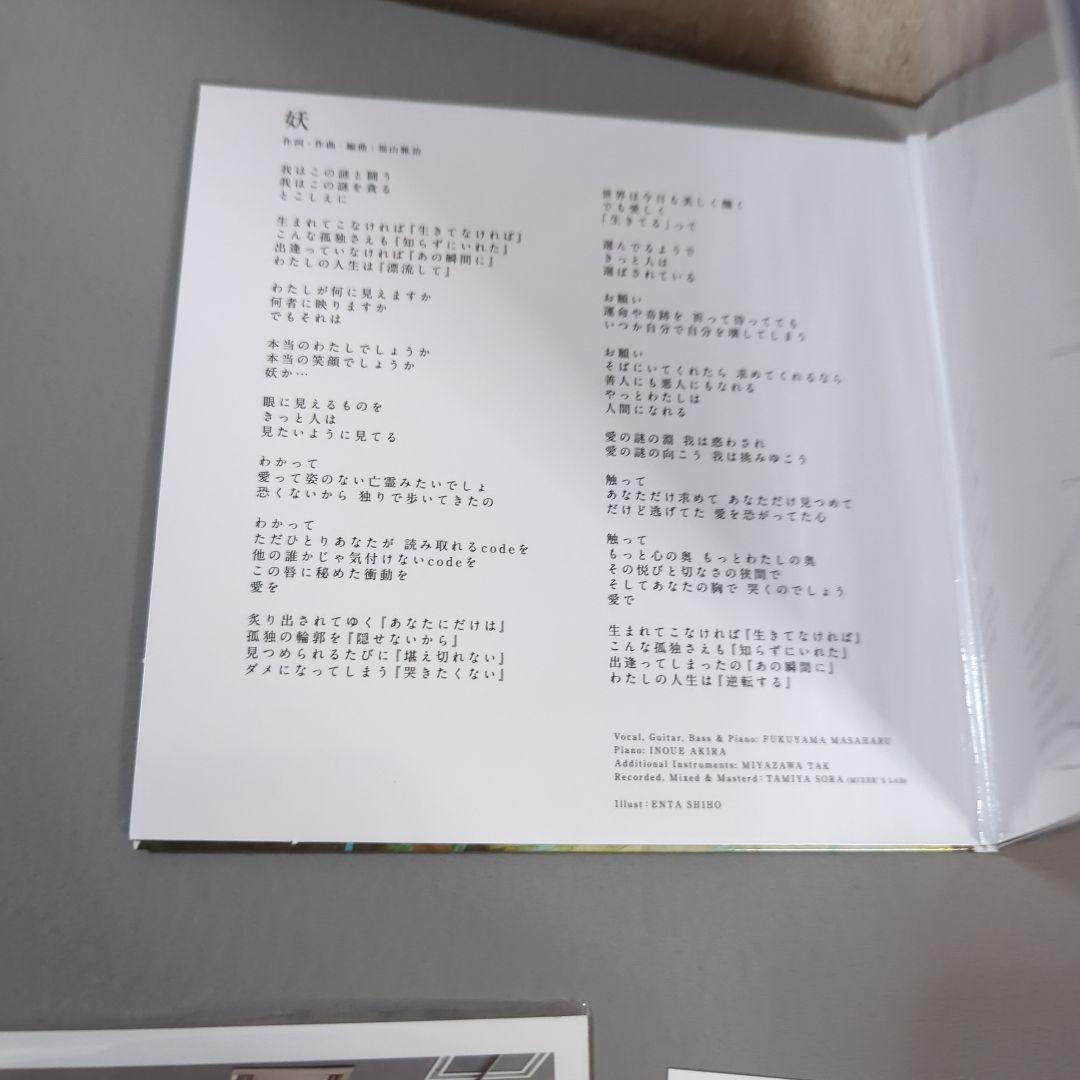 妖
作詞・作曲・編曲：福山雅治
我はこの謎と闘う
我はこの謎を貪る
とこしえに
生まれてこなければ『生きてなければ』
こんな孤独さえも『知らずにいれた』
出逢っていなければ『あの瞬間に』
わたしの人生は『漂流して』
わたしが何に見えますか
何者に映りますか
でもそれは
本当のわたしでしょうか
本当の笑顔でしょうか
妖か…
眼に見えるものを
きっと人は
見たいように見てる
わかって
愛って姿のない亡霊みたいでしょ
恐くないから 独りで歩いてきたの
わかって
ただひとりあなたが 読み取れるcodeを
他の誰かじゃ気付けないcodeを
この唇に秘めた衝動を
愛を
炙り出されてゆく『あなたにだけは』
孤独の輪郭を『隠せないから』
見つめられるたびに『堪え切れない』
ダメになってしまう『哭きたくない』
世界は今日も美しく醜く
でも愛しく
「生きてる」って
選んでるようで
きっと人は
選ばされている
お願い
運命や奇跡を 祈って待ってても
いつか自分で自分を壊してしまう
お願い
そばにいてくれたら 求めてくれるなら
善人にも悪人にもなれる
やっとわたしは
人間になれる
愛の謎の淵 我は惑わされ
愛の謎の向こう 我は挑みゆこう
触って
あなただけ求めて あなただけ見つめて
だけど逃げてた 愛を恐がってた心
触って
もっと心の奥 もっとわたしの奥
その悦びと切なさの狭間で
そしてあなたの胸で 哭くのでしょう
愛で
生まれてこなければ『生きてなければ』
こんな孤独さえも『知らずにいれた』
出逢ってしまったの『あの瞬間に』
わたしの人生は『逆転する』
Vocal, Guitar, Bass & Piano: FUKUYAMA MASAHARU
Piano: INOUE AKIRA
Additional Instruments: MIYAZAWA TAK
Recorded, Mixed & Masterd: TAMIYA SORA (MIXER'S LAB)
Illust: ENTA SHIHO